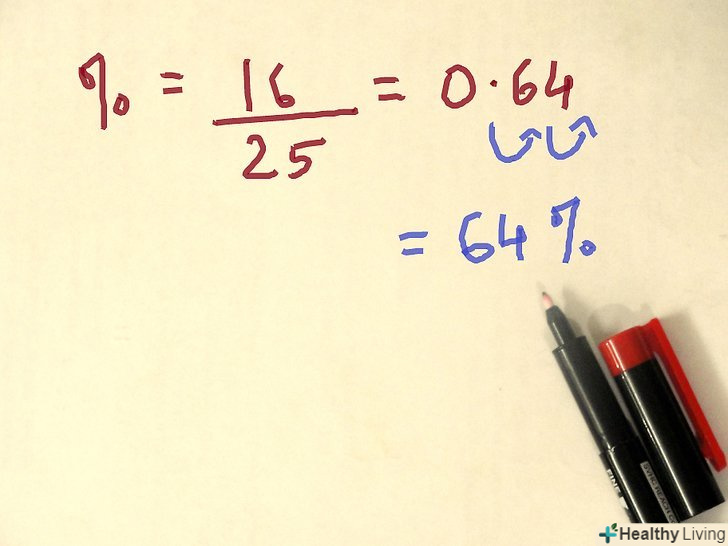 % = 16/25 = 0.64
= 64%
FINE
+Healthy Living